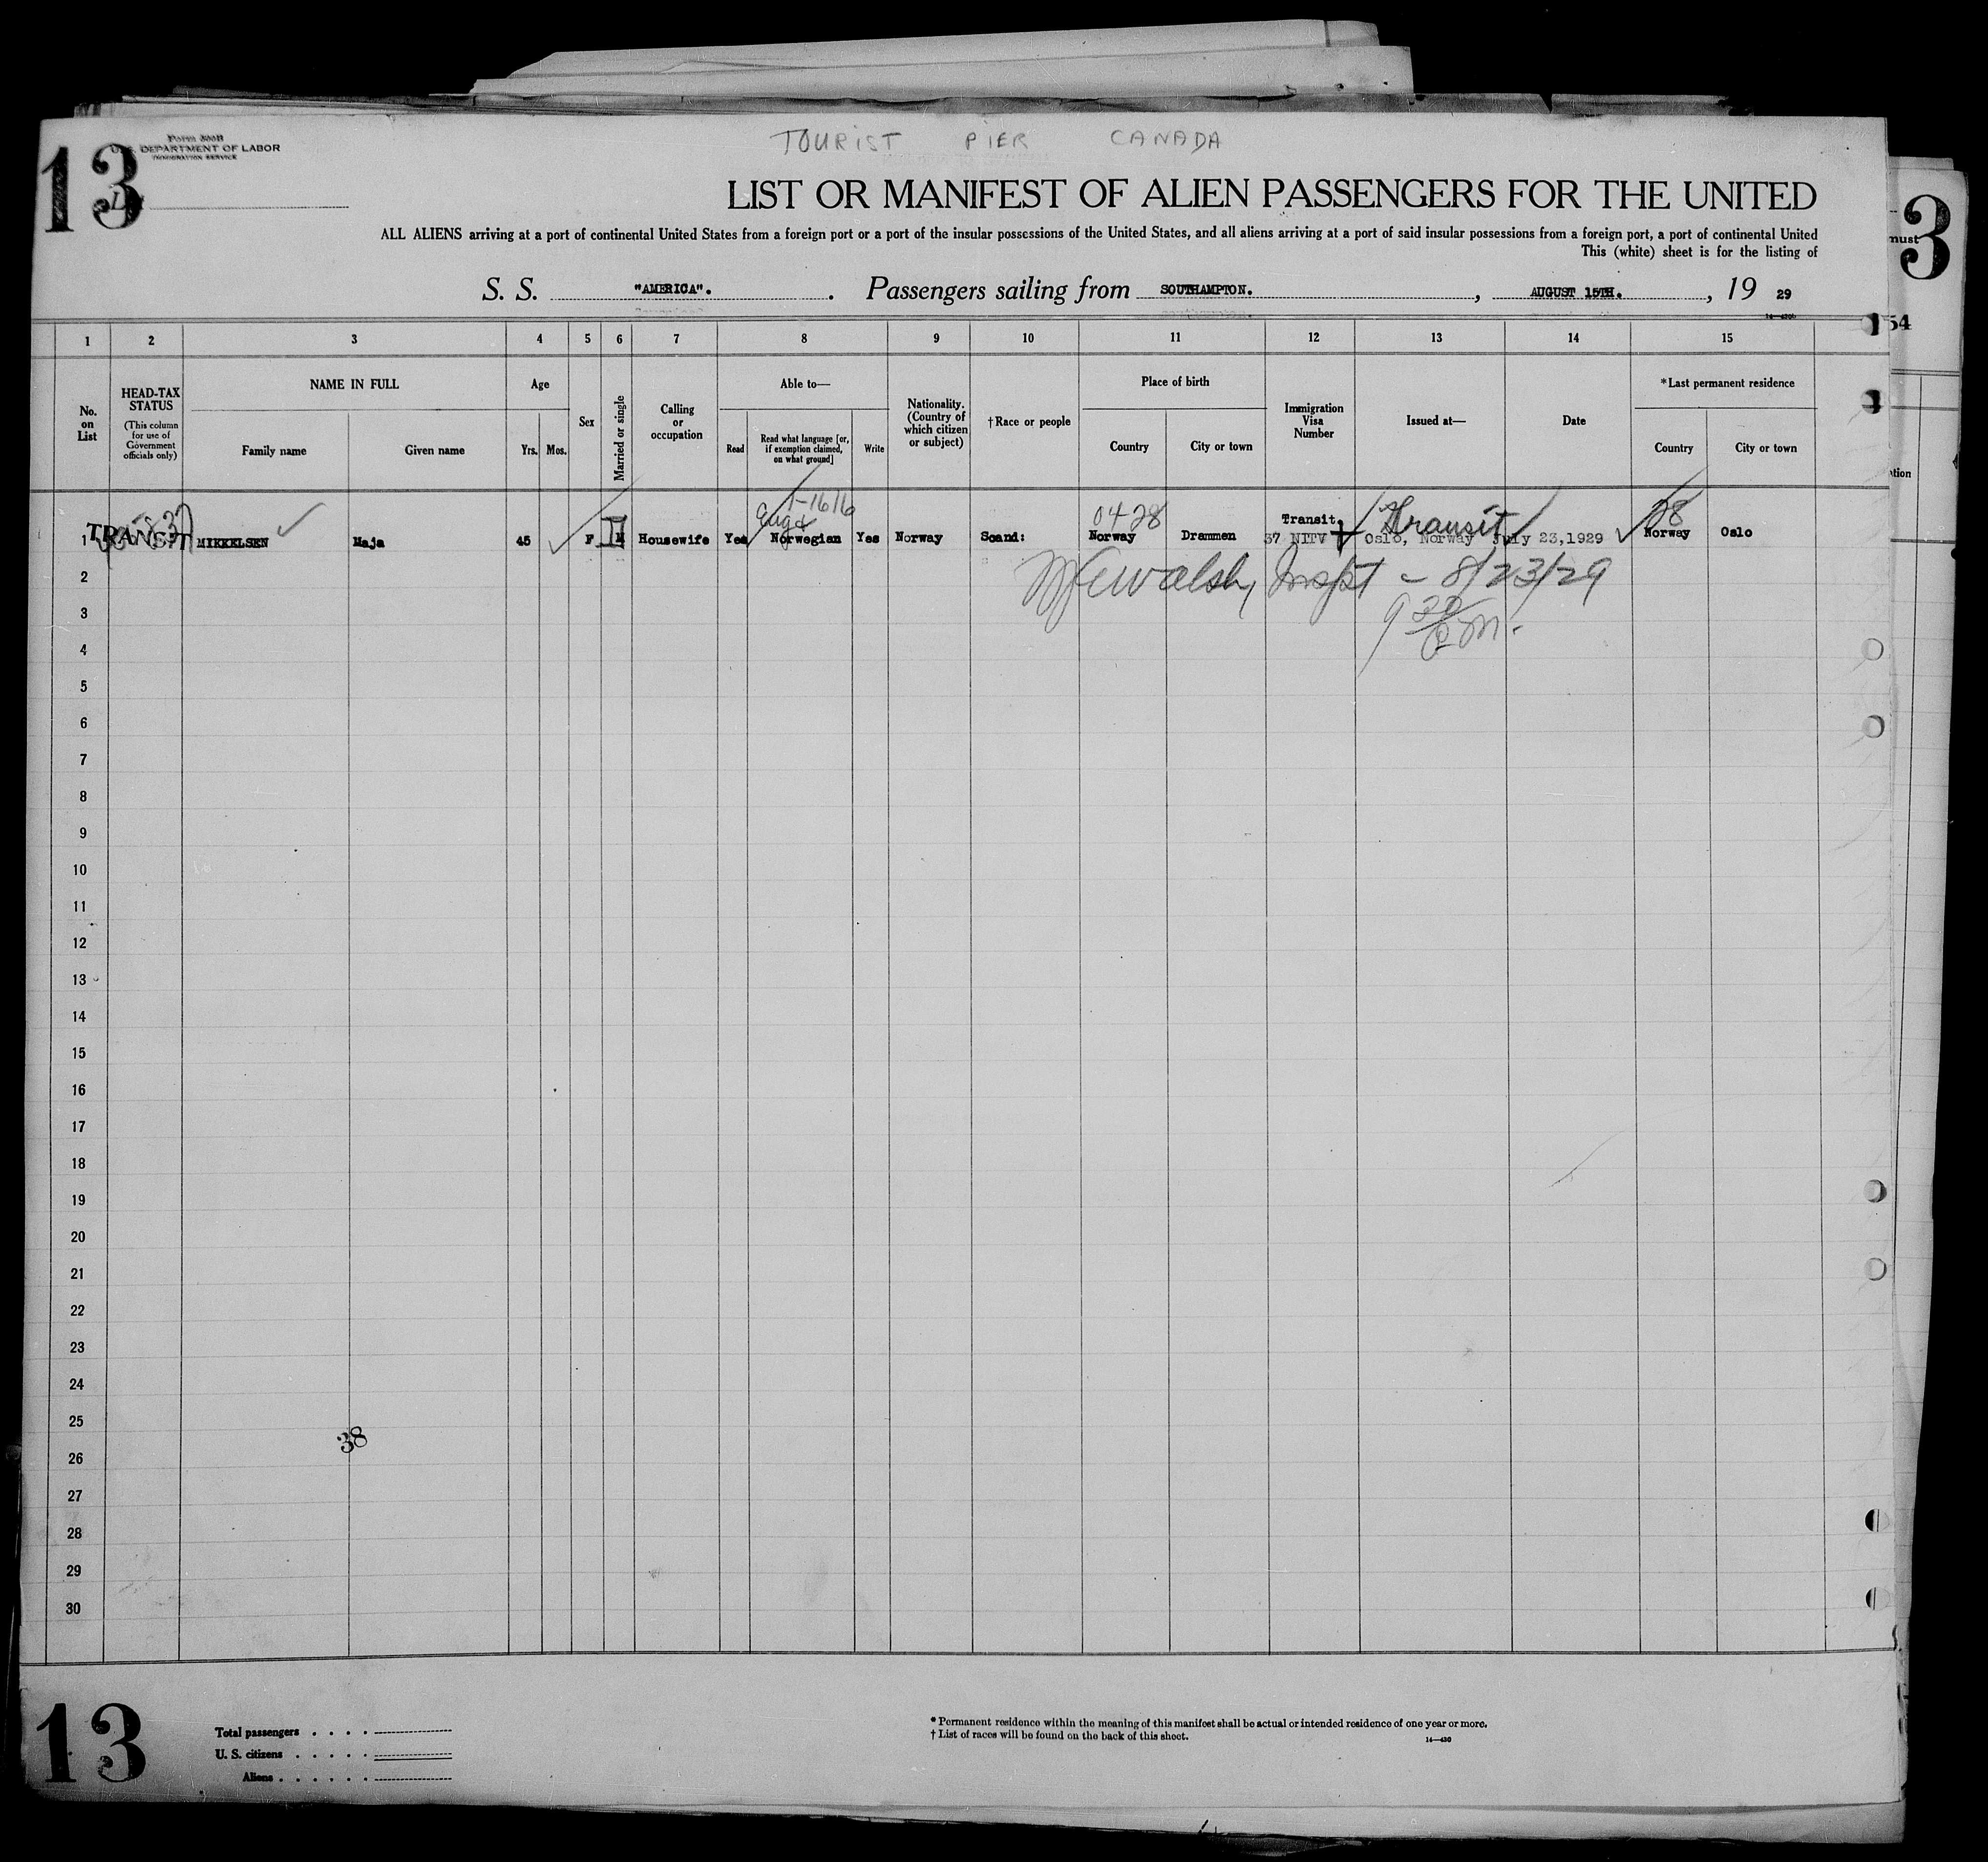 TOURIST PIER CANADA
13
Form 500B
U.S. DEPARTMENT OF LABOR
IMMIGRATION SERVICE
LIST OR MANIFEST OF ALIEN PASSENGERS FOR THE UNITED
3
ALL ALIENS arriving at a port of continental United States from a foreign port or a port of the insular possessions of the United States, and all aliens arriving at a port of said insular possessions from a foreign port, a port of continental United
must
This (white) sheet is for the listing of
S. S. "AMERICA". Passengers sailing from SOUTHAMPTON. , AUGUST 15TH. , 19 29
54
1 2 3 4 5 6 7 8 9 10 11 12 13 14 15
No. on List
HEAD-TAX STATUS
(This column for use of Government officials only)
NAME IN FULL
Family name Given name
Age
Yrs. Mos.
Sex
Married or single
Calling or occupation
Able to—
Read
Read what language [or, if exemption claimed, on what ground]
Write
Nationality. (Country of which citizen or subject)
†Race or people
Place of birth
Country City or town
Immigration Visa Number
Issued at—
Date
*Last permanent residence
Country City or town
1-1616
0428 Transit. Transit 28
1 TRANSIT MIKKELSEN Maja 45 F M Housewife Yes Norwegian Yes Norway Scand: Norway Drammen 37 NITV Oslo, Norway July 23,1929 Norway Oslo
2
Walsh, Inspt - 8/23/29
3
4
5
6
7
8
9
10
11
12
13
14
15
16
17
18
19
20
21
22
23
24
25
38
26
27
28
29
30
13
Total passengers
U. S. citizens
Aliens
* Permanent residence within the meaning of this manifest shall be actual or intended residence of one year or more.
† List of races will be found on the back of this sheet.
14—430